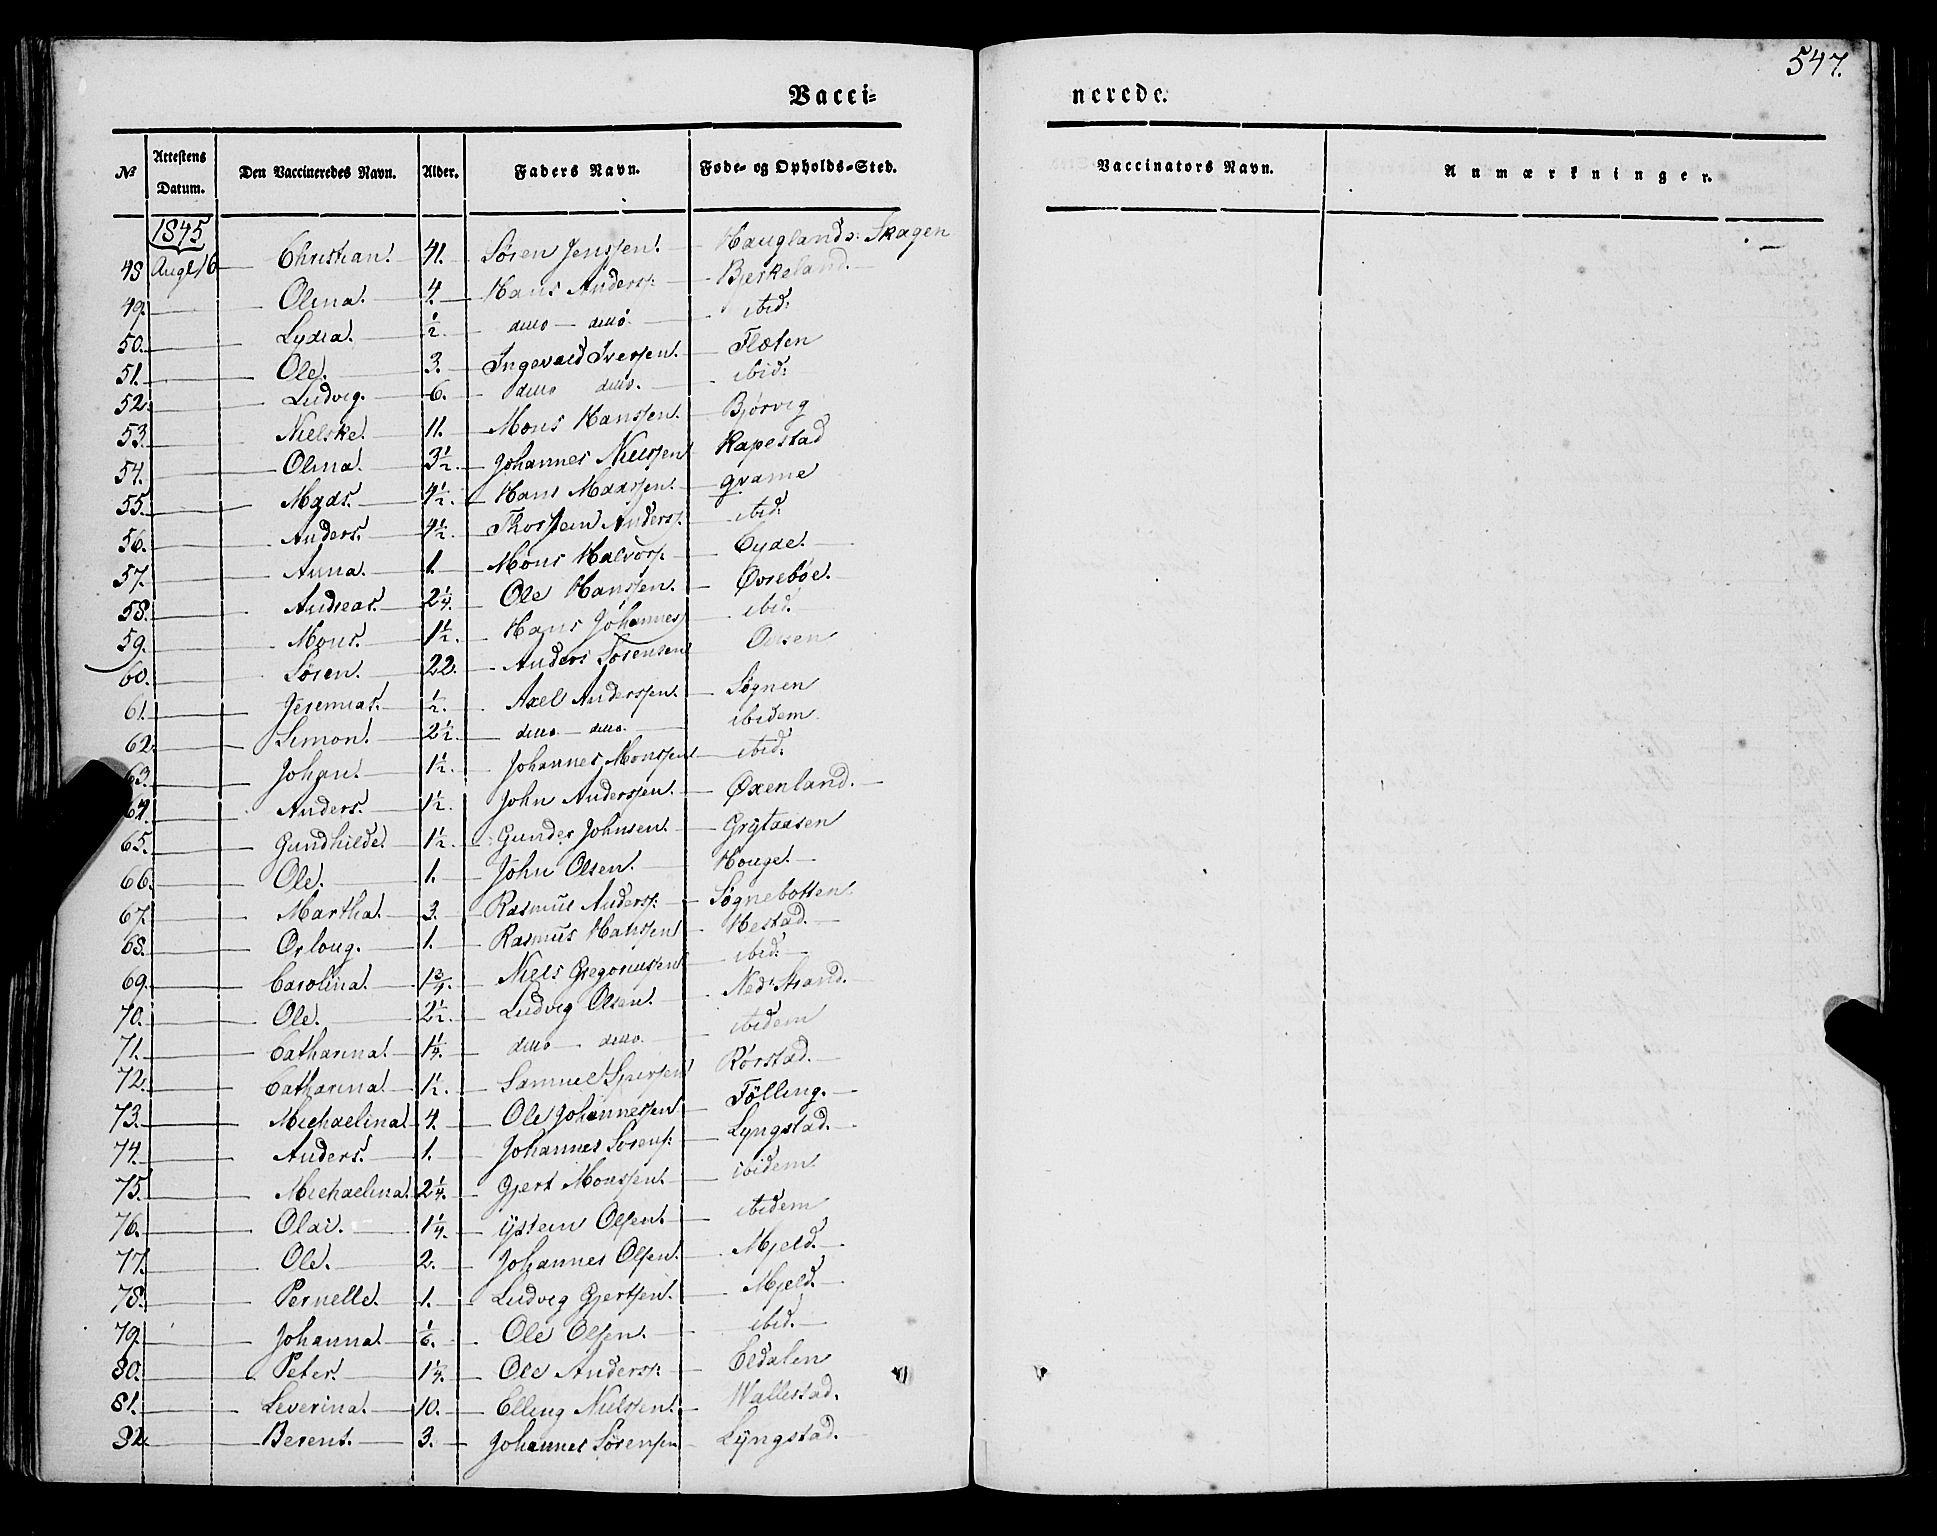 547.
Vacci= nerede.
№ Attestens Datum. Den Vaccineredes Navn. Alder. Faders Navn. Føde- og Opholds-Sted. Vaccinators Navn. Anmærkninger.
1845
48 Augl 16 Christian. 41. Søren Jenssen. Hauglands: Skagen
49. Olina. 4. Hans Anderss: Bjerkeland.
50. Lydia. 1/2 ditto ditto ibid:
51. Ole. 3. Ingevald Iverssen. Flæten
52. Ludvig. 6. ditto ditto. ibid:
53. Nielske. 11. Mons Hanssen. Bjørvig
54. Olina. 3 1/2. Johannes Nielssen Rapestad
55. Mads. 4 1/2. Hans Madssen. Qvame
56. Anders. 4 1/2. Thorstein Anderss: ibid:
57. Anna. 1. Mons Halvors: Eyde.
58. Andreas. 2 1/4. Ole Hanssen. Øvrebøe.
59. Mons. 1 1/2. Hans Johanness ibid.
60. Søren. 22. Anders Sørensen
61. Jeremias. 1/2. Axel Anderssen. Søgnen
62. Simon. 2 1/2. ditto ditto. ibidem.
63. Johan. 1 1/2. Johannes Monssen ibid.
64. Anders. 1 1/2. John Anderssen. Øxenland.
65. Gundhilde. 1 1/2. Gunder Johnsen. Grytaasen
66. Ole. 1. John Olsen. Houge.
67. Martha. 3. Rasmus Anderss: Søgnebotten.
68. Orloug. 1. Rasmus Hanssen Hestad.
69. Carolina. 1 3/4. Niels Gregoriussen ibid.
70. Ole. 2 1/2. Ludvig Olsen. Ned: Strand.
71. Catharina. 1 1/4. ditto ditto. ibidem
72. Catharina. 1 1/2. Samuel Rørstad.
73. Michaelina. 4. Ole Johannessen Fölling.
74. Anders. 1. Johannes Sørens: Lyngstad.
75. Michaelina. 2 1/4. Gjert Monssen. ibidem.
76. Olai. 1 1/4. Ÿstein Olsen. ibidem
77. Ole. 2. Johannes Olsen. Mjeld.
78. Pernelle. 1. Ludvig Gjertsen. Mjeld.
79. Johanna. 1/6. Ole Olsen. ibid.
80. Peter. 1 1/4. Ole Anderss: Eldalen
81. Severina. 10. Elling Nielssen. Wallestad.
82. Berent. 3. Johannes Sørensen Lyngstad.